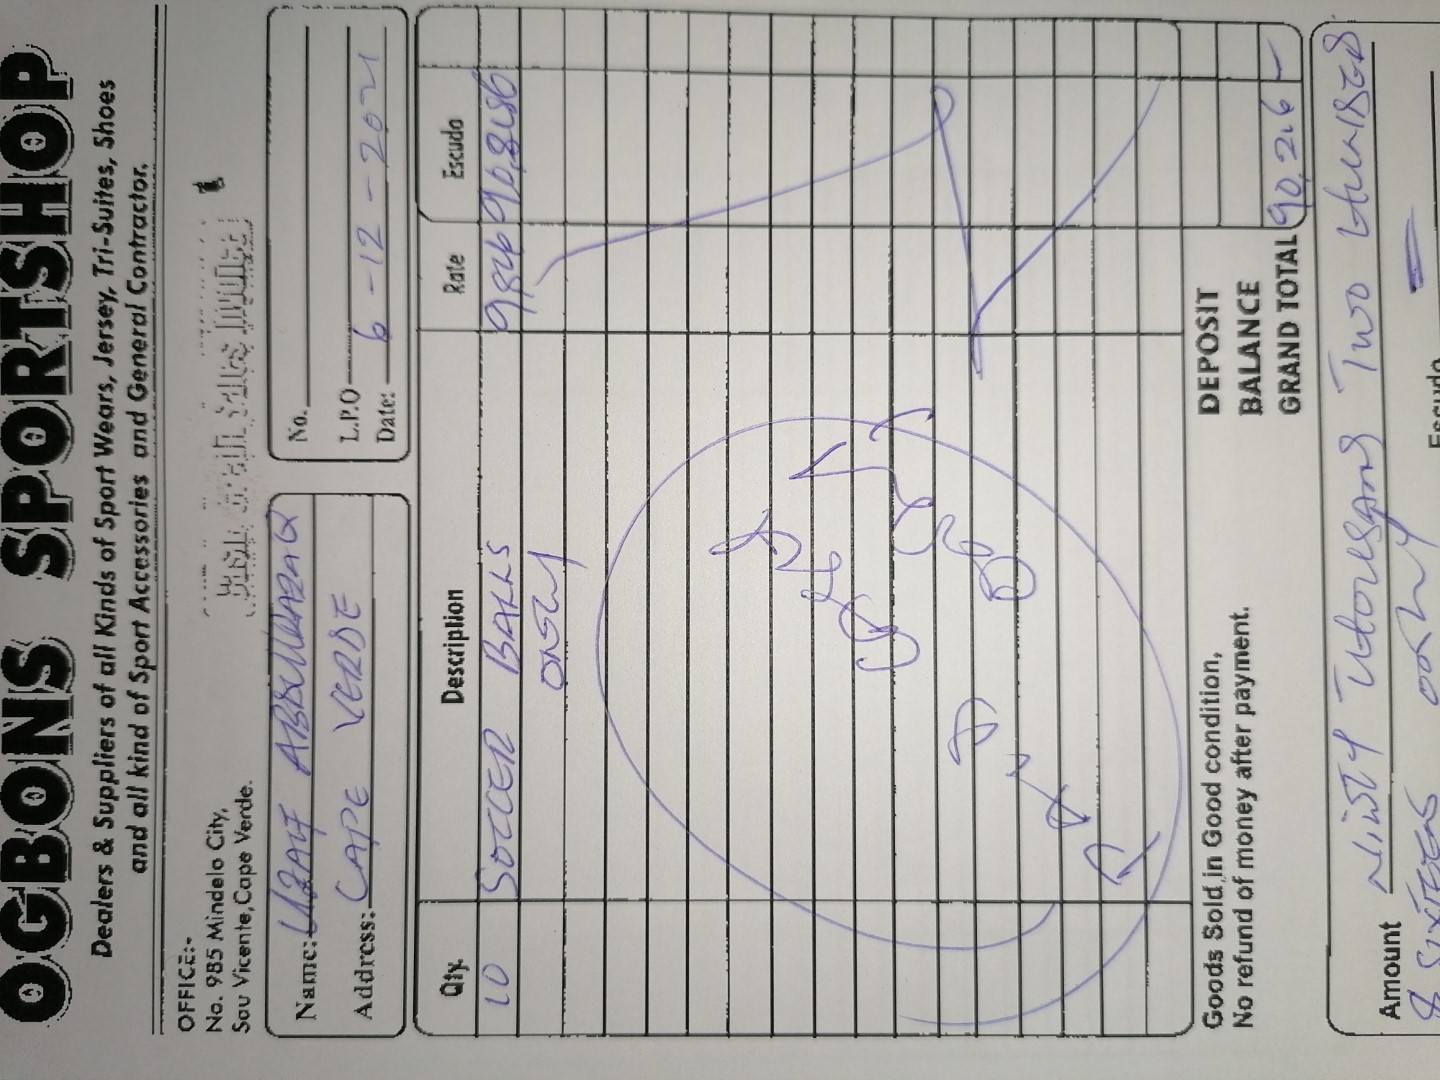 OGBONS SPORTSHOP
Dealers & Suppliers of all Kinds of Sport Wears, Jersey, Tri-Suites, Shoes
and all kind of Sport Accessories and General Contractor.
OFFICE:-
No. 985 Mindelo City,
Sau Vicente, Cape Verde.
Cash/Credit Sales Invoice
Name:
Address: CAPE VERDE
No.
L.P.O
Date: 6-12-2021
Qty. Description Rate Escudo
10 SOCCER BALLS
ONLY
Goods Sold in Good condition,
No refund of money after payment.
DEPOSIT
BALANCE
GRAND TOTAL 90,216
Amount Ninety Thousand Two Hundred
& Sixteen only
Escudo